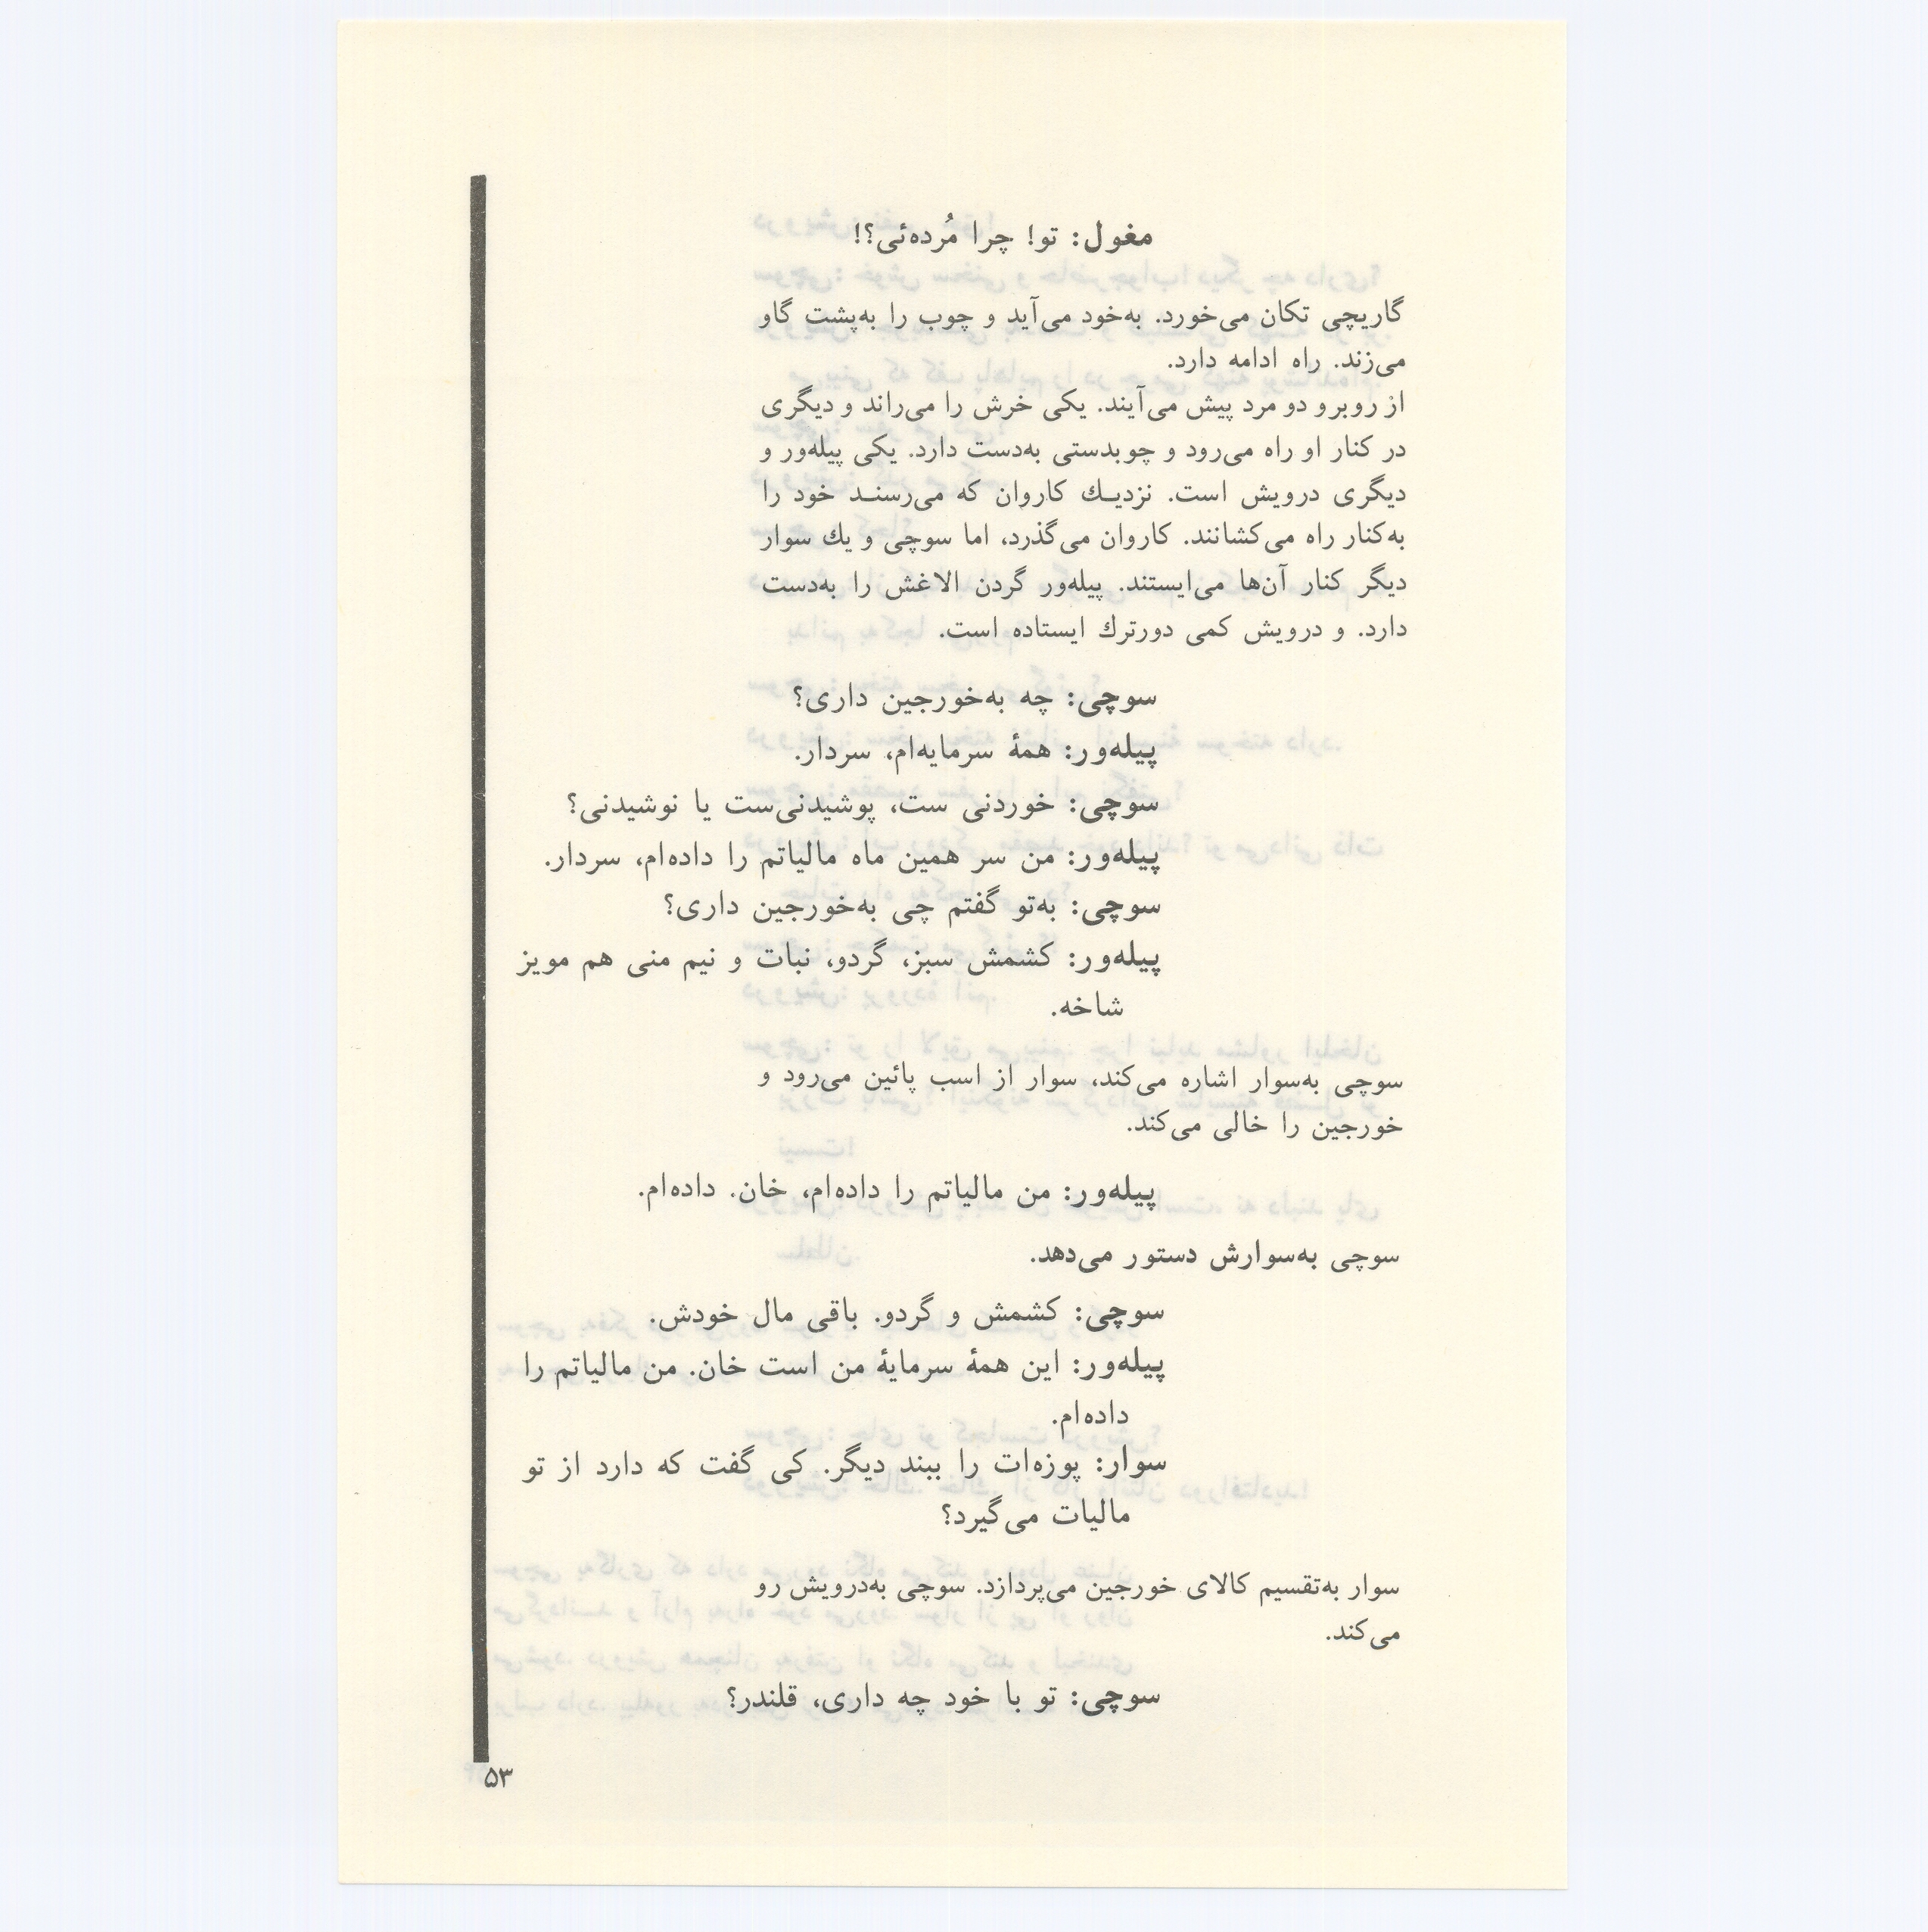 مغول: تو! چرا مُرده‌ئی؟!
گاریچی تکان می‌خورد. به‌خود می‌آید و چوب را به‌پشت گاو
می‌زند. راه ادامه دارد.
از روبرو دو مرد پیش می‌آیند. یکی خرش را می‌راند و دیگری
در کنار او راه می‌رود و چوبدستی به‌دست دارد. یکی پیله‌ور و
دیگری درویش است. نزدیـك کاروان که می‌رسنـد خود را
به‌کنار راه می‌کشانند. کاروان می‌گذرد، اما سوچی و یك سوار
دیگر کنار آن‌ها می‌ایستند. پیله‌ور گردن الاغش را به‌دست
دارد. و درویش کمی دورترك ایستاده است.
سوچی: چه به‌خورجین داری؟
پیله‌ور: همهٔ سرمایه‌ام، سردار.
سوچی: خوردنی ست، پوشیدنی‌ست یا نوشیدنی؟
پیله‌ور: من سر همین ماه مالیاتم را داده‌ام، سردار.
سوچی: به‌تو گفتم چی به‌خورجین داری؟
پیله‌ور: کشمش سبز، گردو، نبات و نیم منی هم مویز
شاخه.
سوچی به‌سوار اشاره می‌کند، سوار از اسب پائین می‌رود و
خورجین را خالی می‌کند.
پیله‌ور: من مالیاتم را داده‌ام، خان. داده‌ام.
سوچی به‌سوارش دستور می‌دهد.
سوچی: کشمش و گردو. باقی مال خودش.
پیله‌ور: این همهٔ سرمایهٔ من است خان. من مالیاتم را
داده‌ام.
سوار: پوزه‌ات را ببند دیگر. کی گفت که دارد از تو
مالیات می‌گیرد؟
سوار به‌تقسیم کالای خورجین می‌پردازد. سوچی به‌درویش رو
می‌کند.
سوچی: تو با خود چه داری، قلندر؟
۵۳